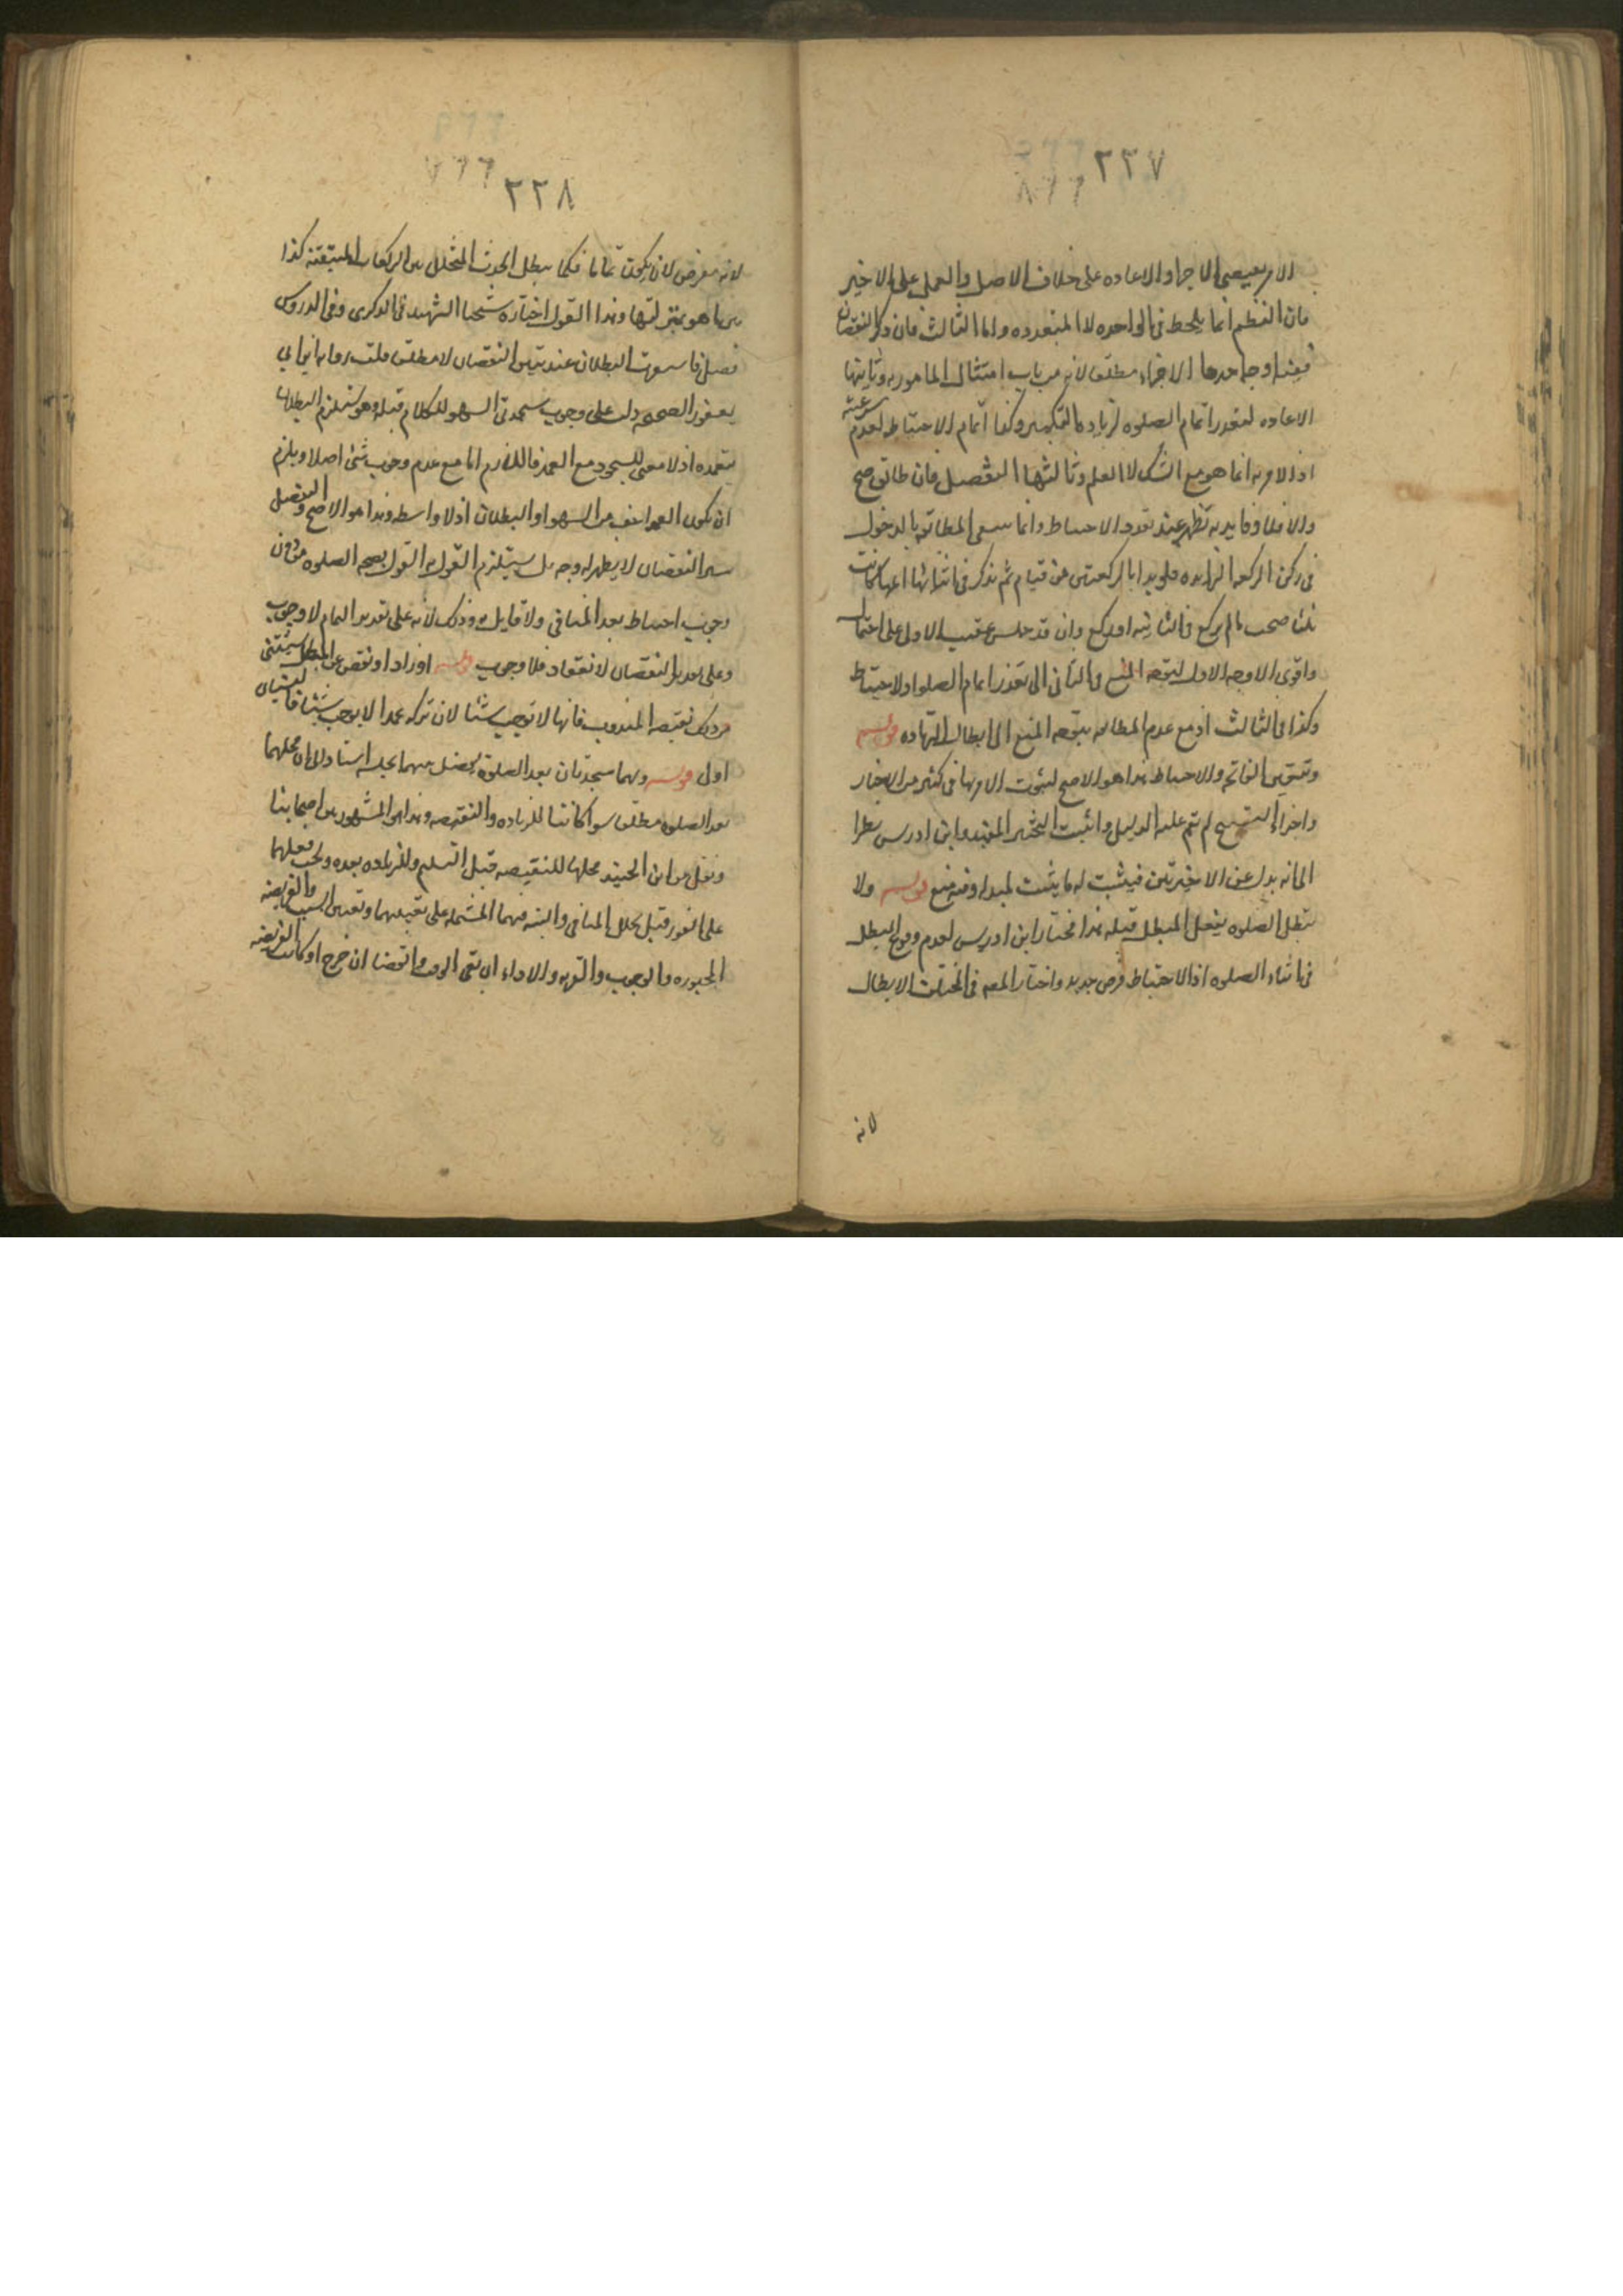 ٢٢٧
الامر يقتضى الاجزا والاعاده على خلاف الاصل والعمل على الاخير
فان النظم انما يلحظ فى الواحده لا المتعدده واما الثالث فان ذكر النقصان
ففيه اوجه احدها الاجزاء مطلقا لانه من باب امتثال المامور به وثانيها
الاعاده لتعذر اتمام الصلوه لزياده التكبير وكذا اتمام الاحتياط لعدم شرعيته
اذ الامر به انما هو مع الشك لا العلم وثالثها التفصيل فان طابق صح
والا فلا وفايدته تظهر عند تعدد الاحتياط وانما ينتفى المطابقه بالدخول
فى ركن الركعه الزايده فلو بدا بالركعتين من قيام ثم تذكر فى اثنائها انها كانت
ثلثا صحت ما لم يركع فى الثانيه او يركع وان قد جلس عقيب الاولى على احتمال
واقوى الاوجه الاول لتوجه المنع فى الثانى الى تعذر اتمام الصلوه او الاحتياط
وكذا فى الثالث اذ مع عدم المطابقه يتوجه المنع الى ابطال الزياده قوله
وتتعين الفاتحه والاحتياط هذا هو الاصح لثبوت الامر بها فى كثير من الاخبار
واجزاء التسبيح لم يتم عليه الدليل واثبت التخيير المفيد وابن ادريس نظرا
الى انه بدل عن الاخيرتين فيثبت له ما يثبت لمبدله وفيه منع قوله ولا
تبطل الصلوه بفعل المبطل قبله هذا مختار ابن ادريس لعدم وقوع المبطل
فى اثناء الصلوه اذ الاحتياط فرض جديد واختار المصه فى المختلف الابطال
لانه
٢٢٨
لانه معرض لان يكون تماما فكما يبطل الحدث المتخلل بين الركعات المتيقنه كذا
بين ما هو بمنزلتها وهذا القول اختاره شيخنا الشهيد فى الذكرى وفى الدروس
فصل فاستوجب البطلان عند تبين النقصان لا مطلقا قلت روايه ابن ابى
يعفور الصحيحه دلت على وجوب سجدتى السهو للكلام قبله وهو يستلزم البطلان
بتعمده اذ لا معنى للسجود مع العمد فاللازم اما مع عدم وجوب شئ اصلا ويلزم
ان يكون العمد اخف من السهو او البطلان اذ لا واسطه وهذا هو الاصح والتفصيل
بين النقصان لا يظهر له وجه بل يستلزم القول به القول بصحه الصلوه من دون
وجوب احتياط بعد المنافى ولا قايل به وذلك لانه على تقدير التمام لا وجوب
وعلى تقدير النقصان لا انعقاد فلا وجوب قوله او زاد او نقص غير المبطل يستثنى
من ذلك نقيصه المندوب فانها لا توجب شيئا لان تركه عمدا لا يوجب شيئا فالنسيان
اولى قوله وهما سجدتان بعد الصلوه يفصل بينهما بجلسه اشار الى ان محلهما
بعد الصلوه مطلقا سوا كانتا للزياده والنقيصه وهذا هو المشهور بين اصحابنا
ونقل عن ابن الجنيد محلها للنقيصه قبل التسليم وللزياده بعده ويجب فعلهما
على الفور قبل تخلل المنافى والنيه فيهما المشتمله على تعيينهما وتعيين السبب والفريضه
المجبوره والوجوب والقربه والاداء ان بقى الوقت والقضا ان خرج او كانت الفريضه